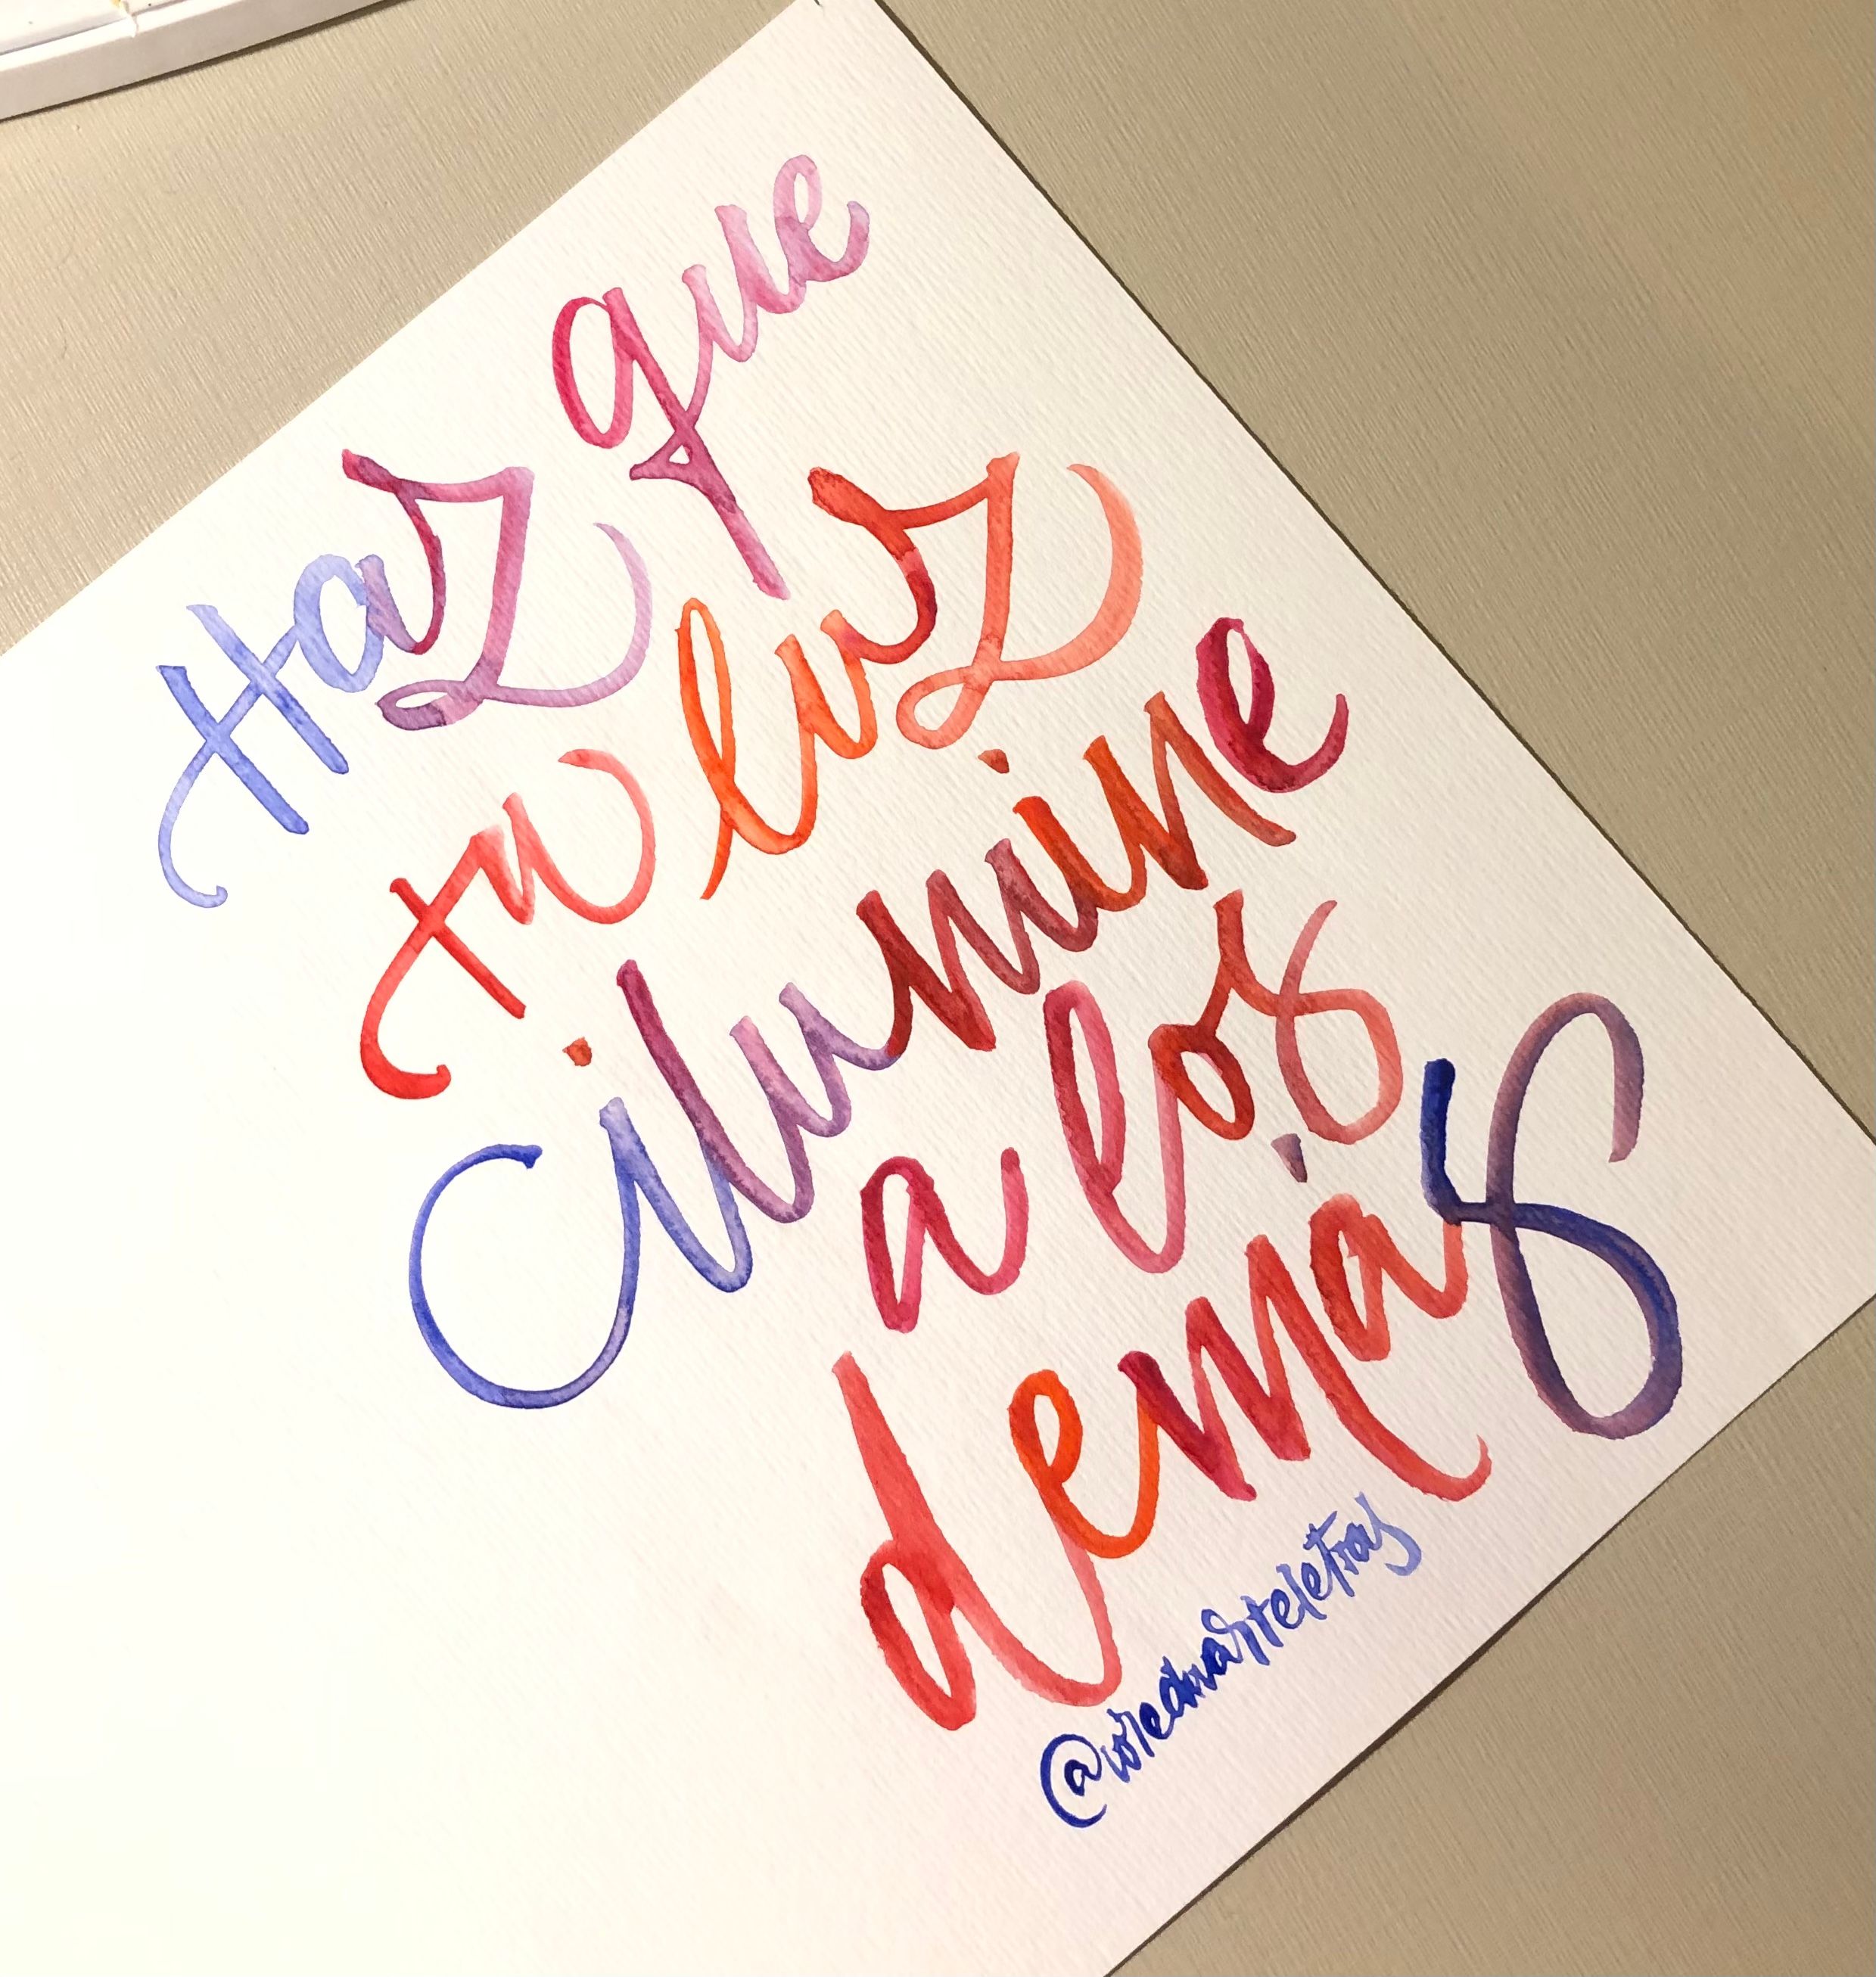 Haz que
tu luz
ilumine
a los
demás